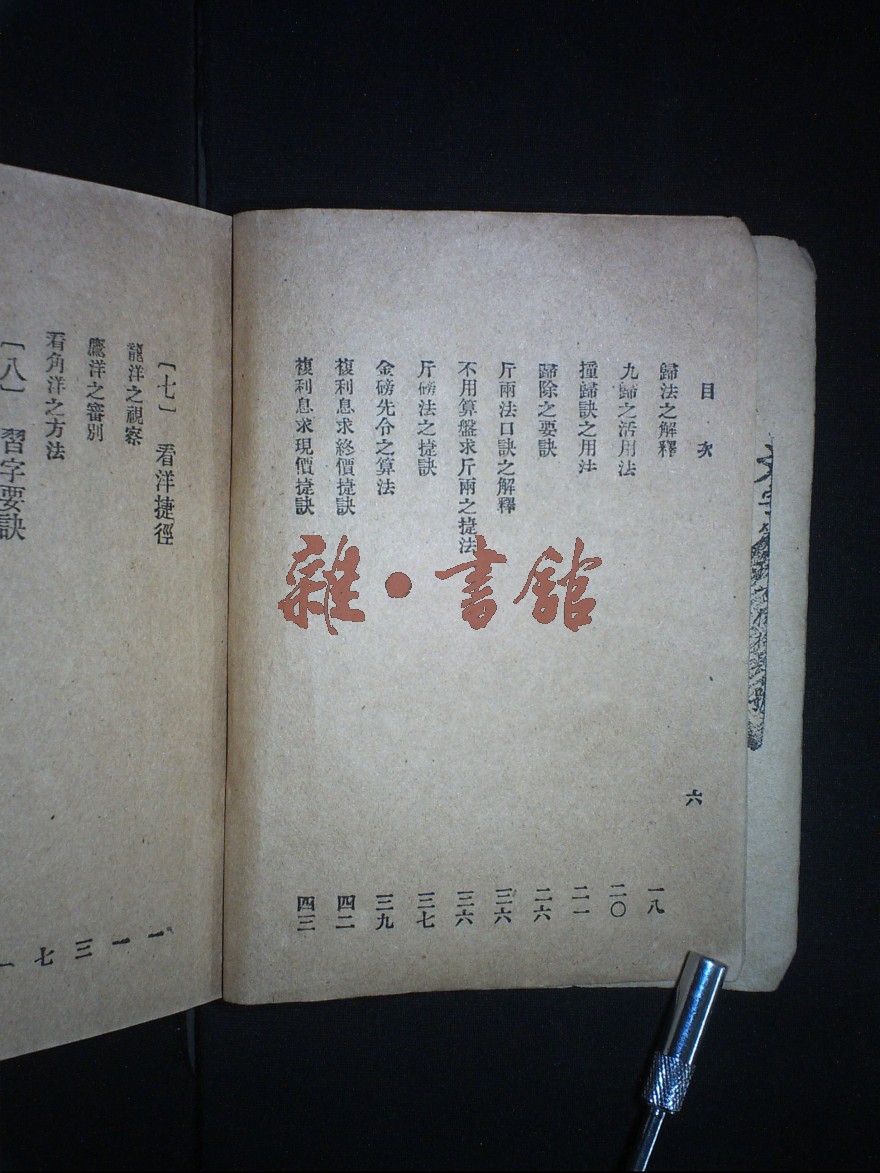 目次
六
歸法之解釋 一八
九歸之活用法 二〇
撞歸訣之用法 二一
歸除之要訣 二六
斤兩法口訣之解釋 三六
不用算盤求斤兩之捷法 三六
斤磅法之捷訣 三七
金磅先令之算法 三九
複利息求終價捷訣 四二
複利息求現價捷訣 四三
〔七〕 看洋捷徑
龍洋之視察 一
鷹洋之審別 一
看角洋之方法 三
〔八〕 習字要訣
雜·書館